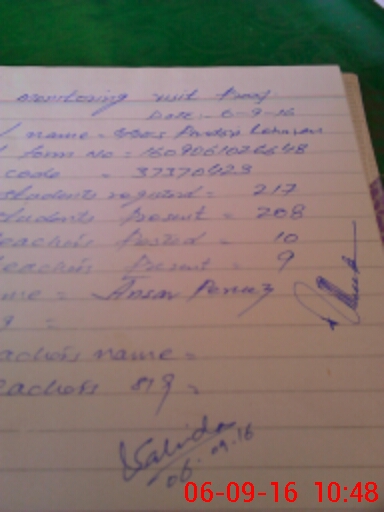 monitoring visit Proof
Date:- 6-9-16
name =
form No = 16090610
code = 37370429
students registerd = 217
students Present = 208
eachers Posted = 10
eachers Present = 9
me = Ansar Pervez
=
eachers name =
eachers sig =
06.09.16
06-09-16 10:48